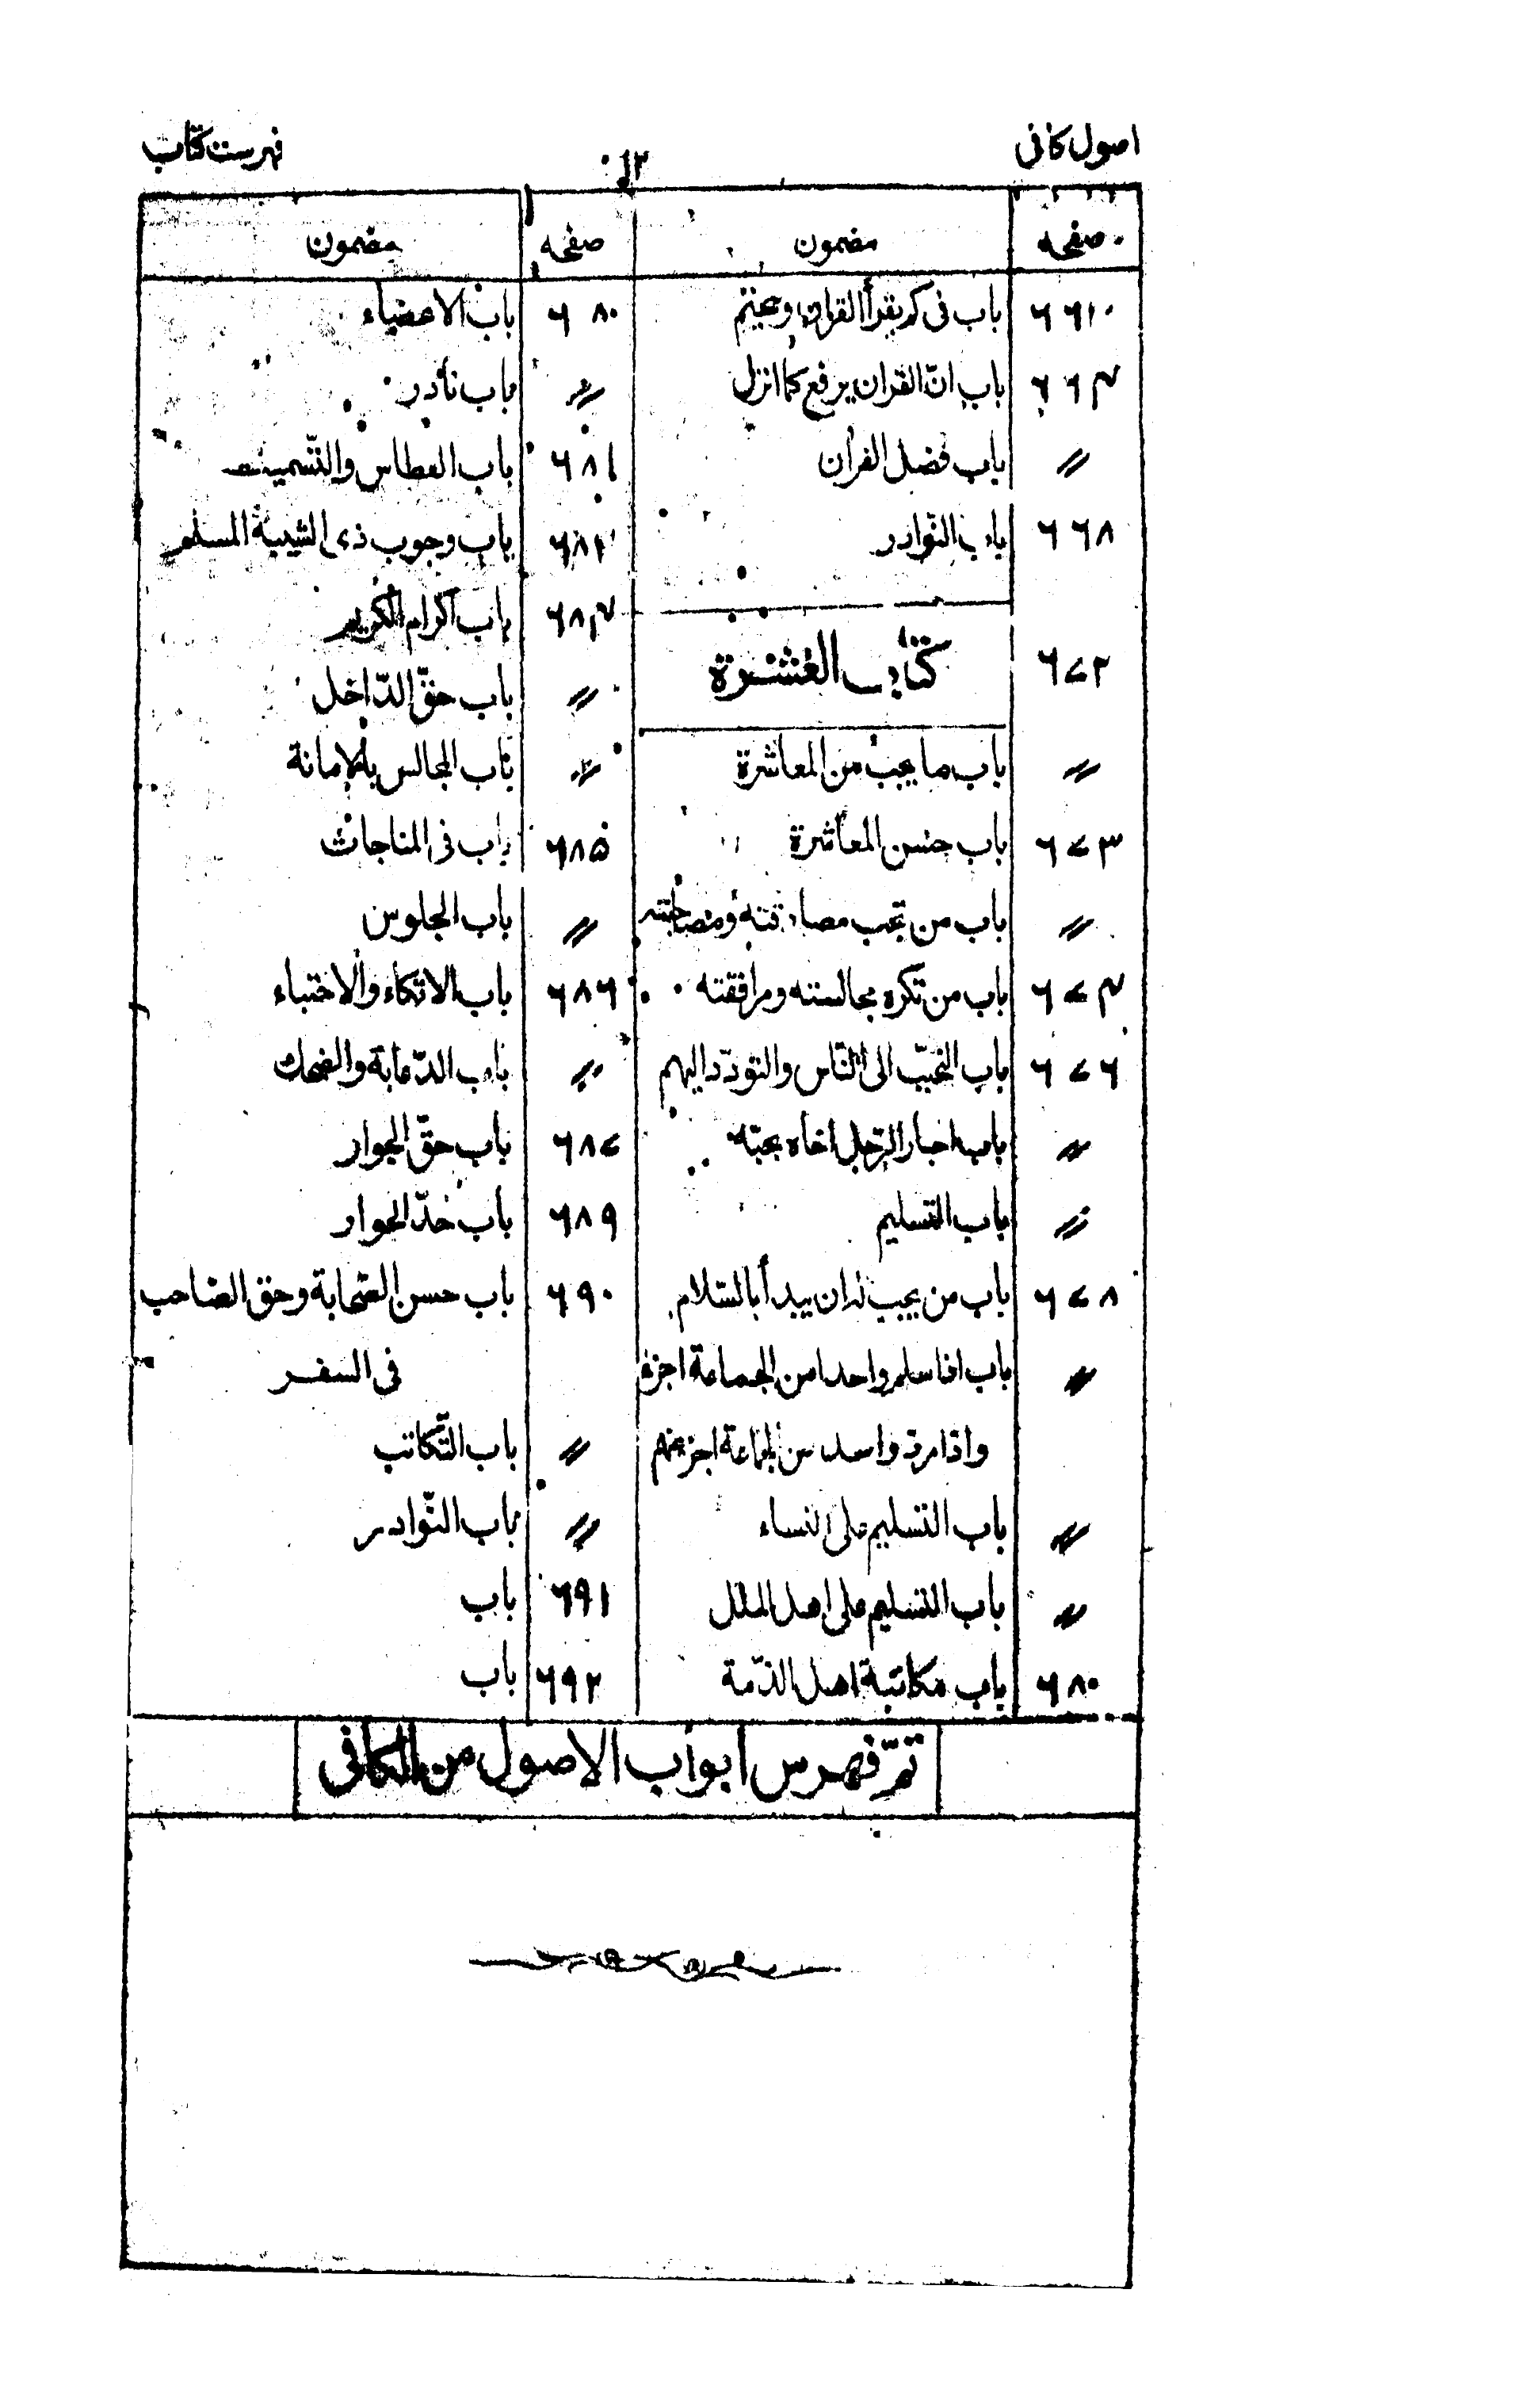 اصول کافی
۱۲
فهرست کتاب
صفحه مضمون
صفحه مضمون
باب فی کم یقرأ القران و یختم
۶۶۴ باب انّ القران یرفع کما انزل
〃 باب فضل القران
۶۶۸ باب النّوادر
۶۷۲ کتاب العشرة
〃 باب ما یجب من المعاشرة
۶۷۳ باب حسن المعاشرة
〃 باب من تجب مصادقته ومصاحبته
۶۷۴ باب من تکره مجالسته ومرافقته
۶۷۶ باب التحبّب الی النّاس والتودّد الیهم
〃 باب اخبار الرّجل اخاه بحبّه
〃 باب التسلیم
۶۷۸ باب من یجب ان یبدأ بالسّلام
〃 باب اذا سلم واحد من الجماعة اجزء
واذا مرد واحد من الجماعة اجزء عنهم
〃 باب التسلیم علی النساء
〃 باب التسلیم علی اهل الملل
۶۸۰ باب مکاتبة اهل الذّمة
۶۸۰ باب الاعضاء
〃 باب نادر
۶۸۱ باب العطاس والتّسمیت
باب وجوب ذی الشیبة المسلم
۶۸۴ باب اکرام الکریم
〃 باب حقّ الدّاخل
〃 باب المجالس بالامانة
۶۸۵ باب فی المناجات
〃 باب الجلوس
۶۸۶ باب الاتکاء والاحتباء
〃 باب الدّعابة والضحك
۶۸۷ باب حقّ الجوار
۶۸۹ باب حدّ الجوار
۶۹۰ باب حسن الصّحابة وحق الصّاحب
فی السفر
〃 باب التّکاتب
〃 باب النّوادر
۶۹۱ باب
۶۹۲ باب
تمّ فهرس ابواب الاصول من الکافی